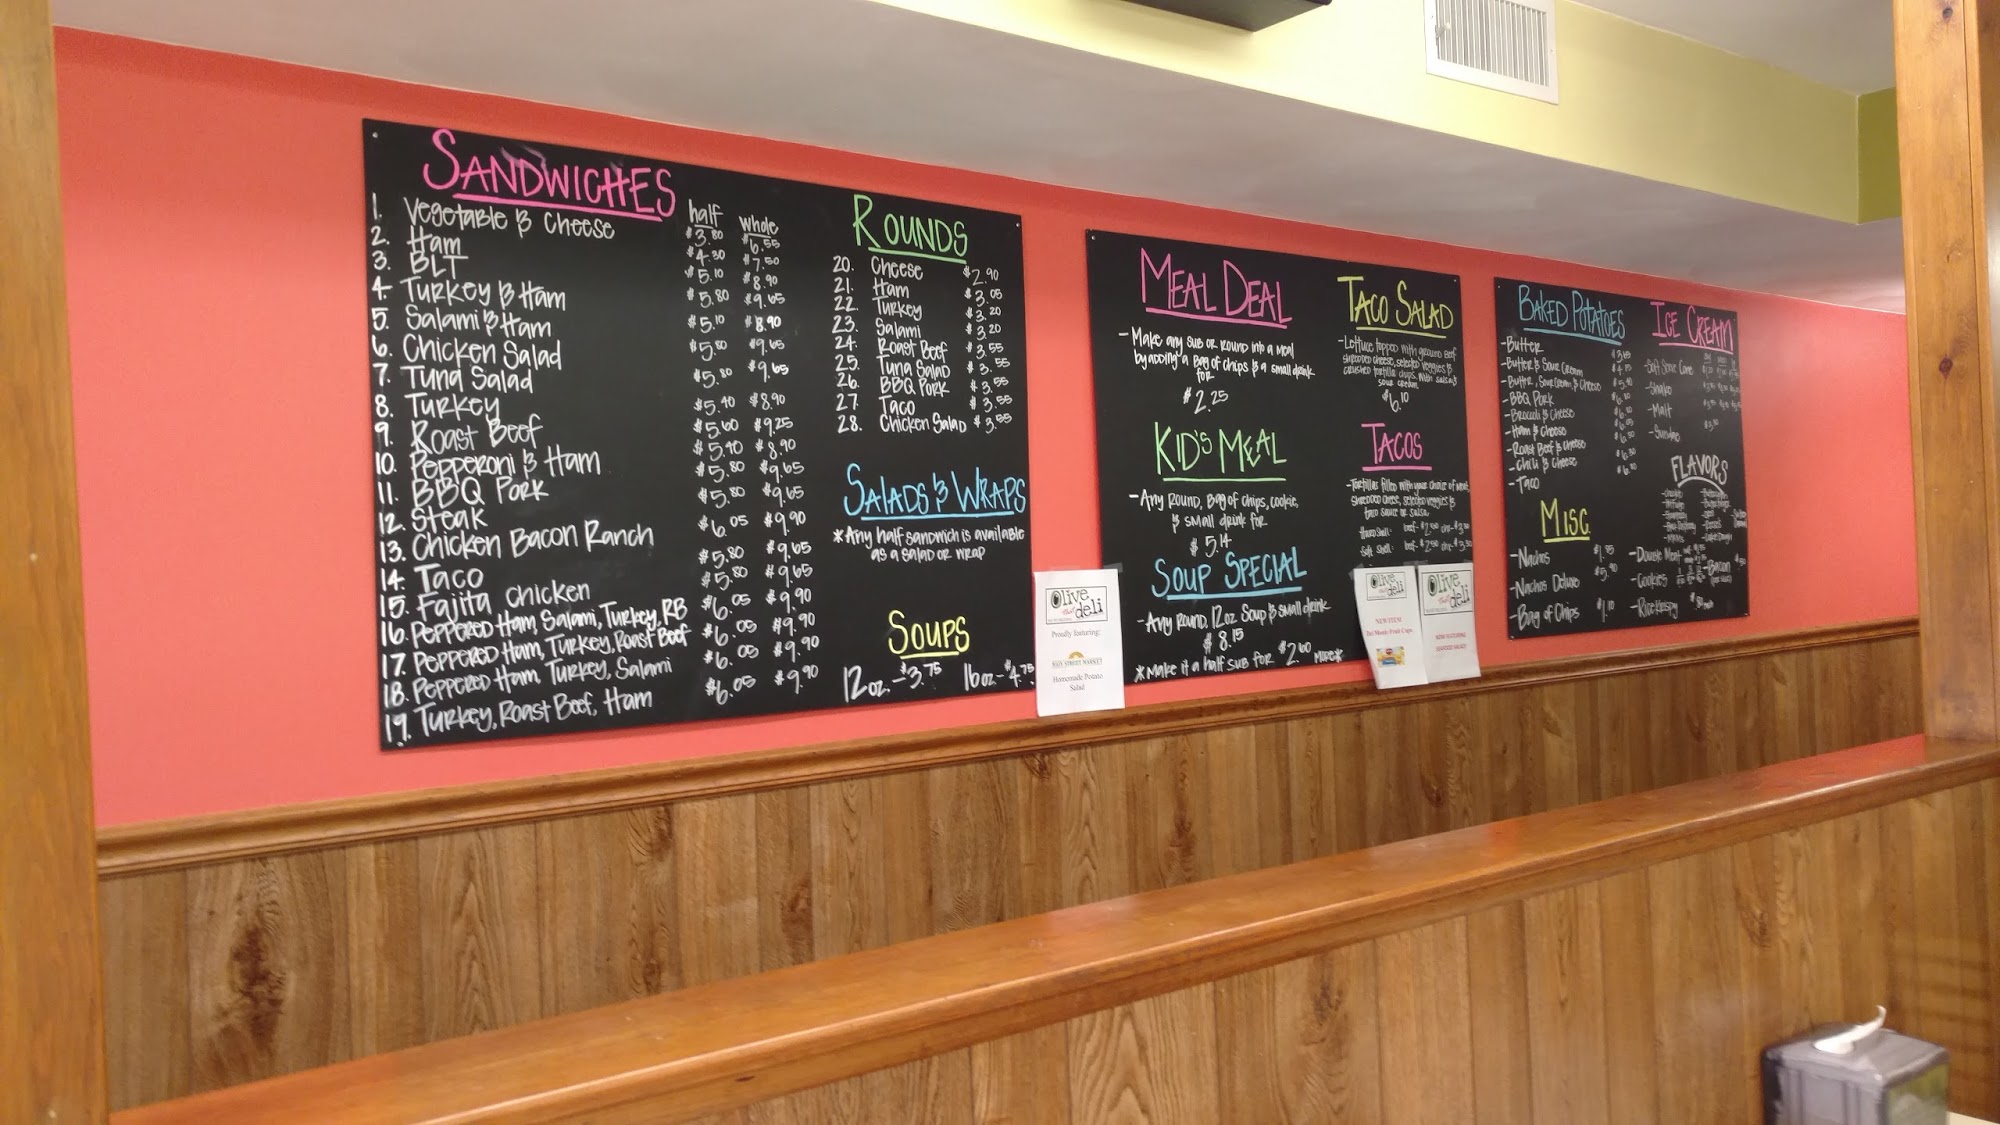 SANDWICHES
half whole
1. Vegetable & Cheese $3.80 $6.55
2. Ham $4.30 $7.50
3. BLT $5.10 $8.90
4. Turkey & Ham $5.80 $9.65
5. Salami & Ham $5.10 $8.90
6. Chicken Salad $5.80 $9.65
7. Tuna Salad $5.80 $9.65
8. Turkey $5.40 $8.90
9. Roast Beef $5.60 $9.25
10. Pepperoni & Ham $5.40 $8.90
11. BBQ Pork $5.80 $9.65
12. Steak $5.80 $9.65
13. Chicken Bacon Ranch $6.05 $9.90
14. Taco $5.80 $9.65
15. Fajita Chicken $5.80 $9.65
16. Peppered Ham, Salami, Turkey, RB $6.05 $9.90
17. Peppered Ham, Turkey, Roast Beef $6.05 $9.90
18. Peppered Ham, Turkey, Salami $6.05 $9.90
19. Turkey, Roast Beef, Ham $6.05 $9.90
ROUNDS
20. Cheese $2.90
21. Ham $3.05
22. Turkey $3.20
23. Salami $3.20
24. Roast Beef $3.55
25. Tuna Salad $3.55
26. BBQ Pork $3.55
27. Taco $3.55
28. Chicken Salad $3.55
SALADS & WRAPS
*Any half sandwich is available
as a salad or wrap
SOUPS
12oz.-$3.75 16oz-$4.75
Olive that deli
Proudly featuring:
MAIN STREET MARKET
Homemade Potato
Salad
MEAL DEAL
-Make any sub or round into a meal
by adding a bag of chips & a small drink
for
$2.25
KID'S MEAL
-Any round, bag of chips, cookie,
& small drink for
$5.14
SOUP SPECIAL
-Any round, 12oz Soup & small drink
$8.15
*Make it a half sub for $2.60 more*
TACO SALAD
-Lettuce topped with ground beef
shredded cheese, selected veggies &
crushed tortilla chips. With salsa &
sour cream.
$6.10
TACOS
-Tortillas filled with your choice of meat,
shredded cheese, selected veggies &
taco sauce or salsa.
Hard Shell: beef-
Soft Shell: beef-
Olive that deli
NEW ITEM!
Del Monte Fruit Cups
Olive that deli
NOW FEATURING
SEAFOOD SALAD!
BAKED POTATOES
-Butter
-Butter & Sour Cream
-Butter, Sour Cream, & Cheese
-BBQ Pork
-Broccoli & Cheese
-Ham & Cheese
-Roast Beef & Cheese
-Chili & Cheese
-Taco
MISC.
-Nachos
-Nachos Deluxe
-Bag of Chips $1.10
ICE CREAM
-Soft Serve Cone
-Shake
-Malt
-Sundae
FLAVORS
-Double Meat
-Bacon
-Cookies
-Rice Krispy